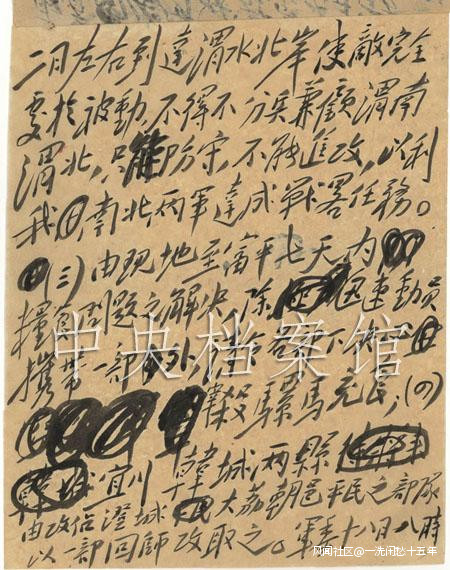 二日左右到达渭水北岸使敌完全
处於被动,不得不分兵兼顾渭南
渭北,只能防守,不能进攻,以利
我南北两军达成战略任务。
(三)由现地至富平七天内
粮食问题之解决,除边区运动员
携带一部外,
杀骡马充飢;(四)
宜川韩城两县
由政信澄城大荔朝邑平民之部队
以一部回师攻取之。军委十八日八时
中央档案馆
凤闻社区@一洗闲愁十五年